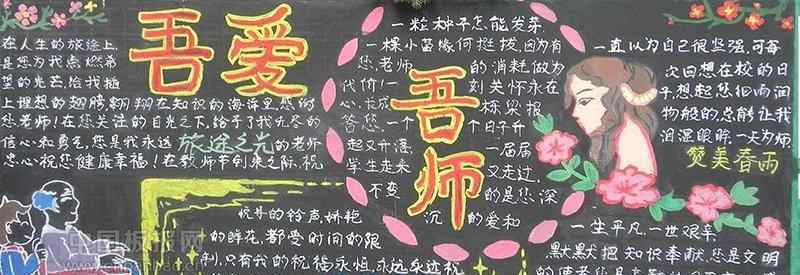 吾爱
吾师
在人生的旅途上,
是您为我点燃希
望的光芒,给我插
上理想的翅膀,翱翔在知识的海洋里,您的
您老师!在您关注的目光之下,给予了我无尽的
信心和勇气,您是我永远旅途之光的老师
忠心祝您健康幸福!在教师节到来之际,祝
一粒种子怎能发芽,
一棵小苗缘何挺拔,因为有
您老师的消耗做为
代价!一刻关怀永在
心,长成栋梁报
答您,一个日子升
起又升落,一届届
学生走来又走过,
不变的是您深
沉的爱和
一直以为自己很坚强,可每
次回想在校的日
子,想起您细雨润
物般的总能让我
泪湿眼眸,一天为师,
赞美春雨
悦耳的铃声,娇艳
的鲜花,都受时间的限
制,只有我的祝福永恒,永远永远祝
一生平凡一世艰辛,
默默把知识奉献,您是文明
中国板报网